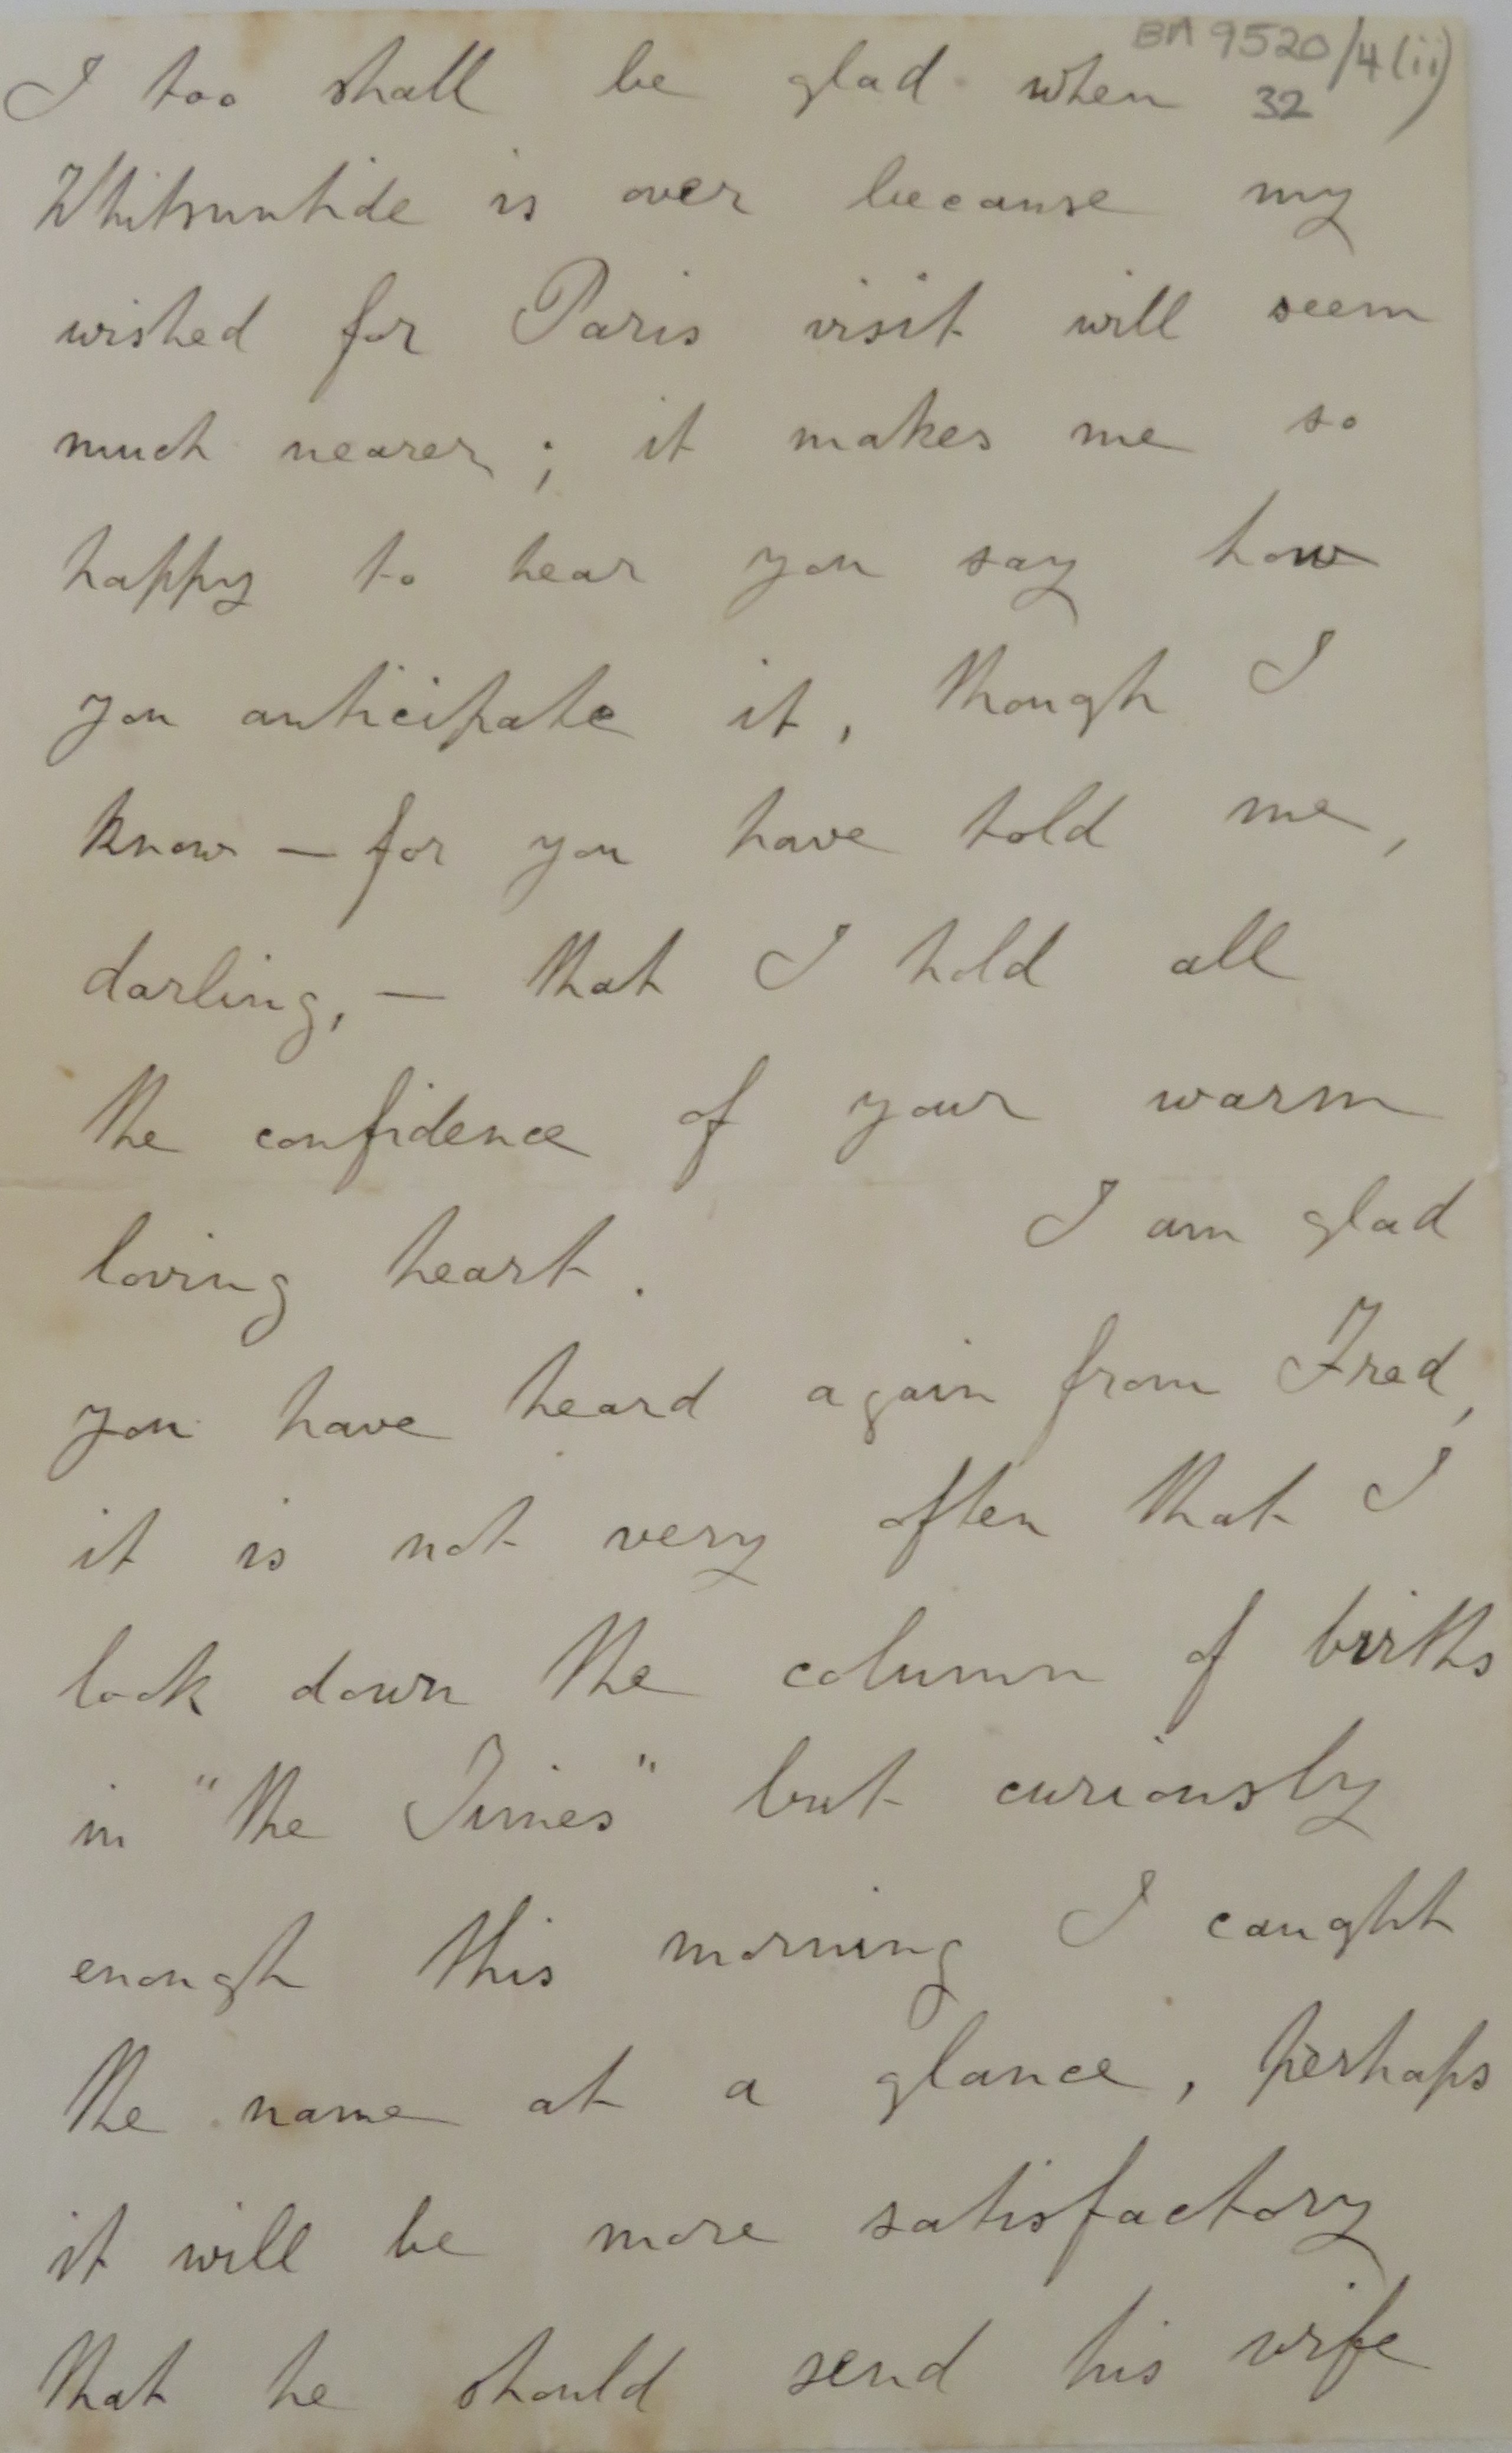 BM 9520/4(ii)
I too shall be glad when 32
Whitsuntide is over because my
wished for Paris visit will seem
much nearer; it makes me so
happy to hear you say how
you anticipate it, though I
know – for you have told me,
darling, – that I hold all
the confidence of your warm
loving heart. I am glad
you have heard again from Fred,
it is not very often that I
look down the column of births
in "the Times" but curiously
enough this morning I caught
the name at a glance, perhaps
it will be more satisfactory
that he should send his wife